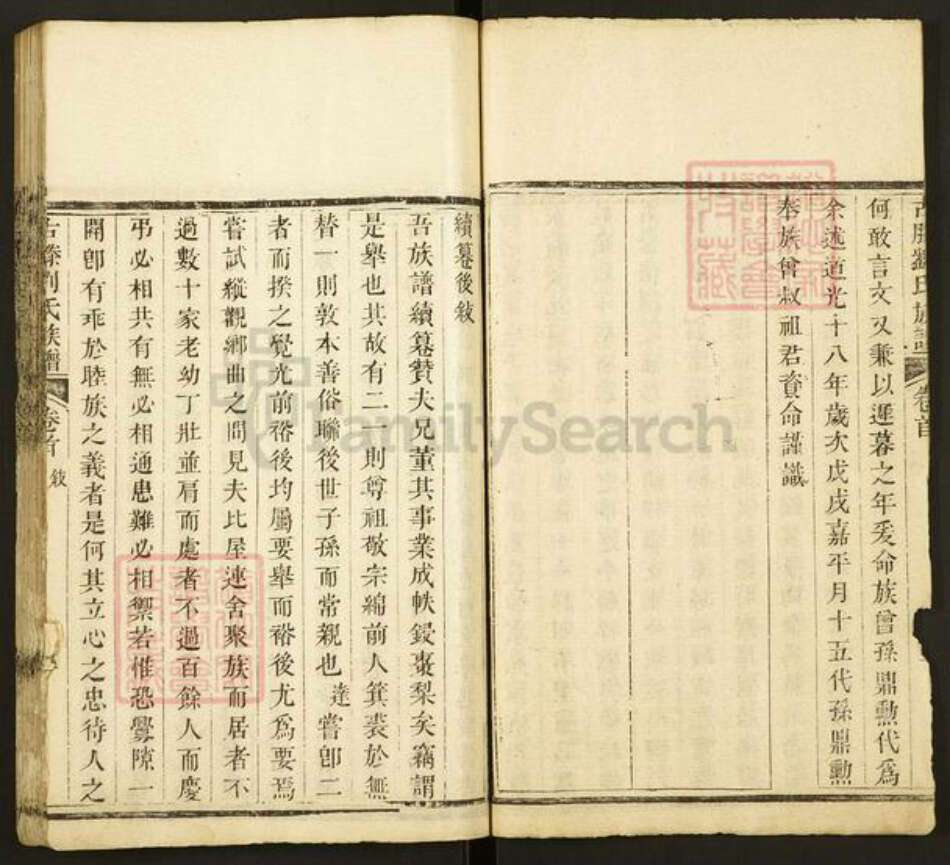 何敢言文又兼以遲暮之年爰命族曾孫鼎勲代爲
余述道光十八年歲次戊戌嘉平月十五代孫鼎勲
奉族曾叔祖君資命謹識
劉氏族譜
卷首
續纂後敘
吾族譜續纂贊夫兄董其事業成帙鋟棗梨矣竊謂
是舉也其故有二一則尊祖敬宗綿前人箕裘於無
替一則敦本善俗聯後世子孫而常親也達嘗卽二
者而揆之覺光前裕後均屬要舉而裕後尤爲要焉
嘗試縱觀鄉曲之間見夫比屋連舍聚族而居者不
過數十家老幼丁壯並肩而處者不過百餘人而慶
弔必相共有無必相通患難必相禦若惟恐釁隙一
開卽有乖於睦族之義者是何其立心之忠待人之
劉氏族譜
卷首
敘
FamilySearch